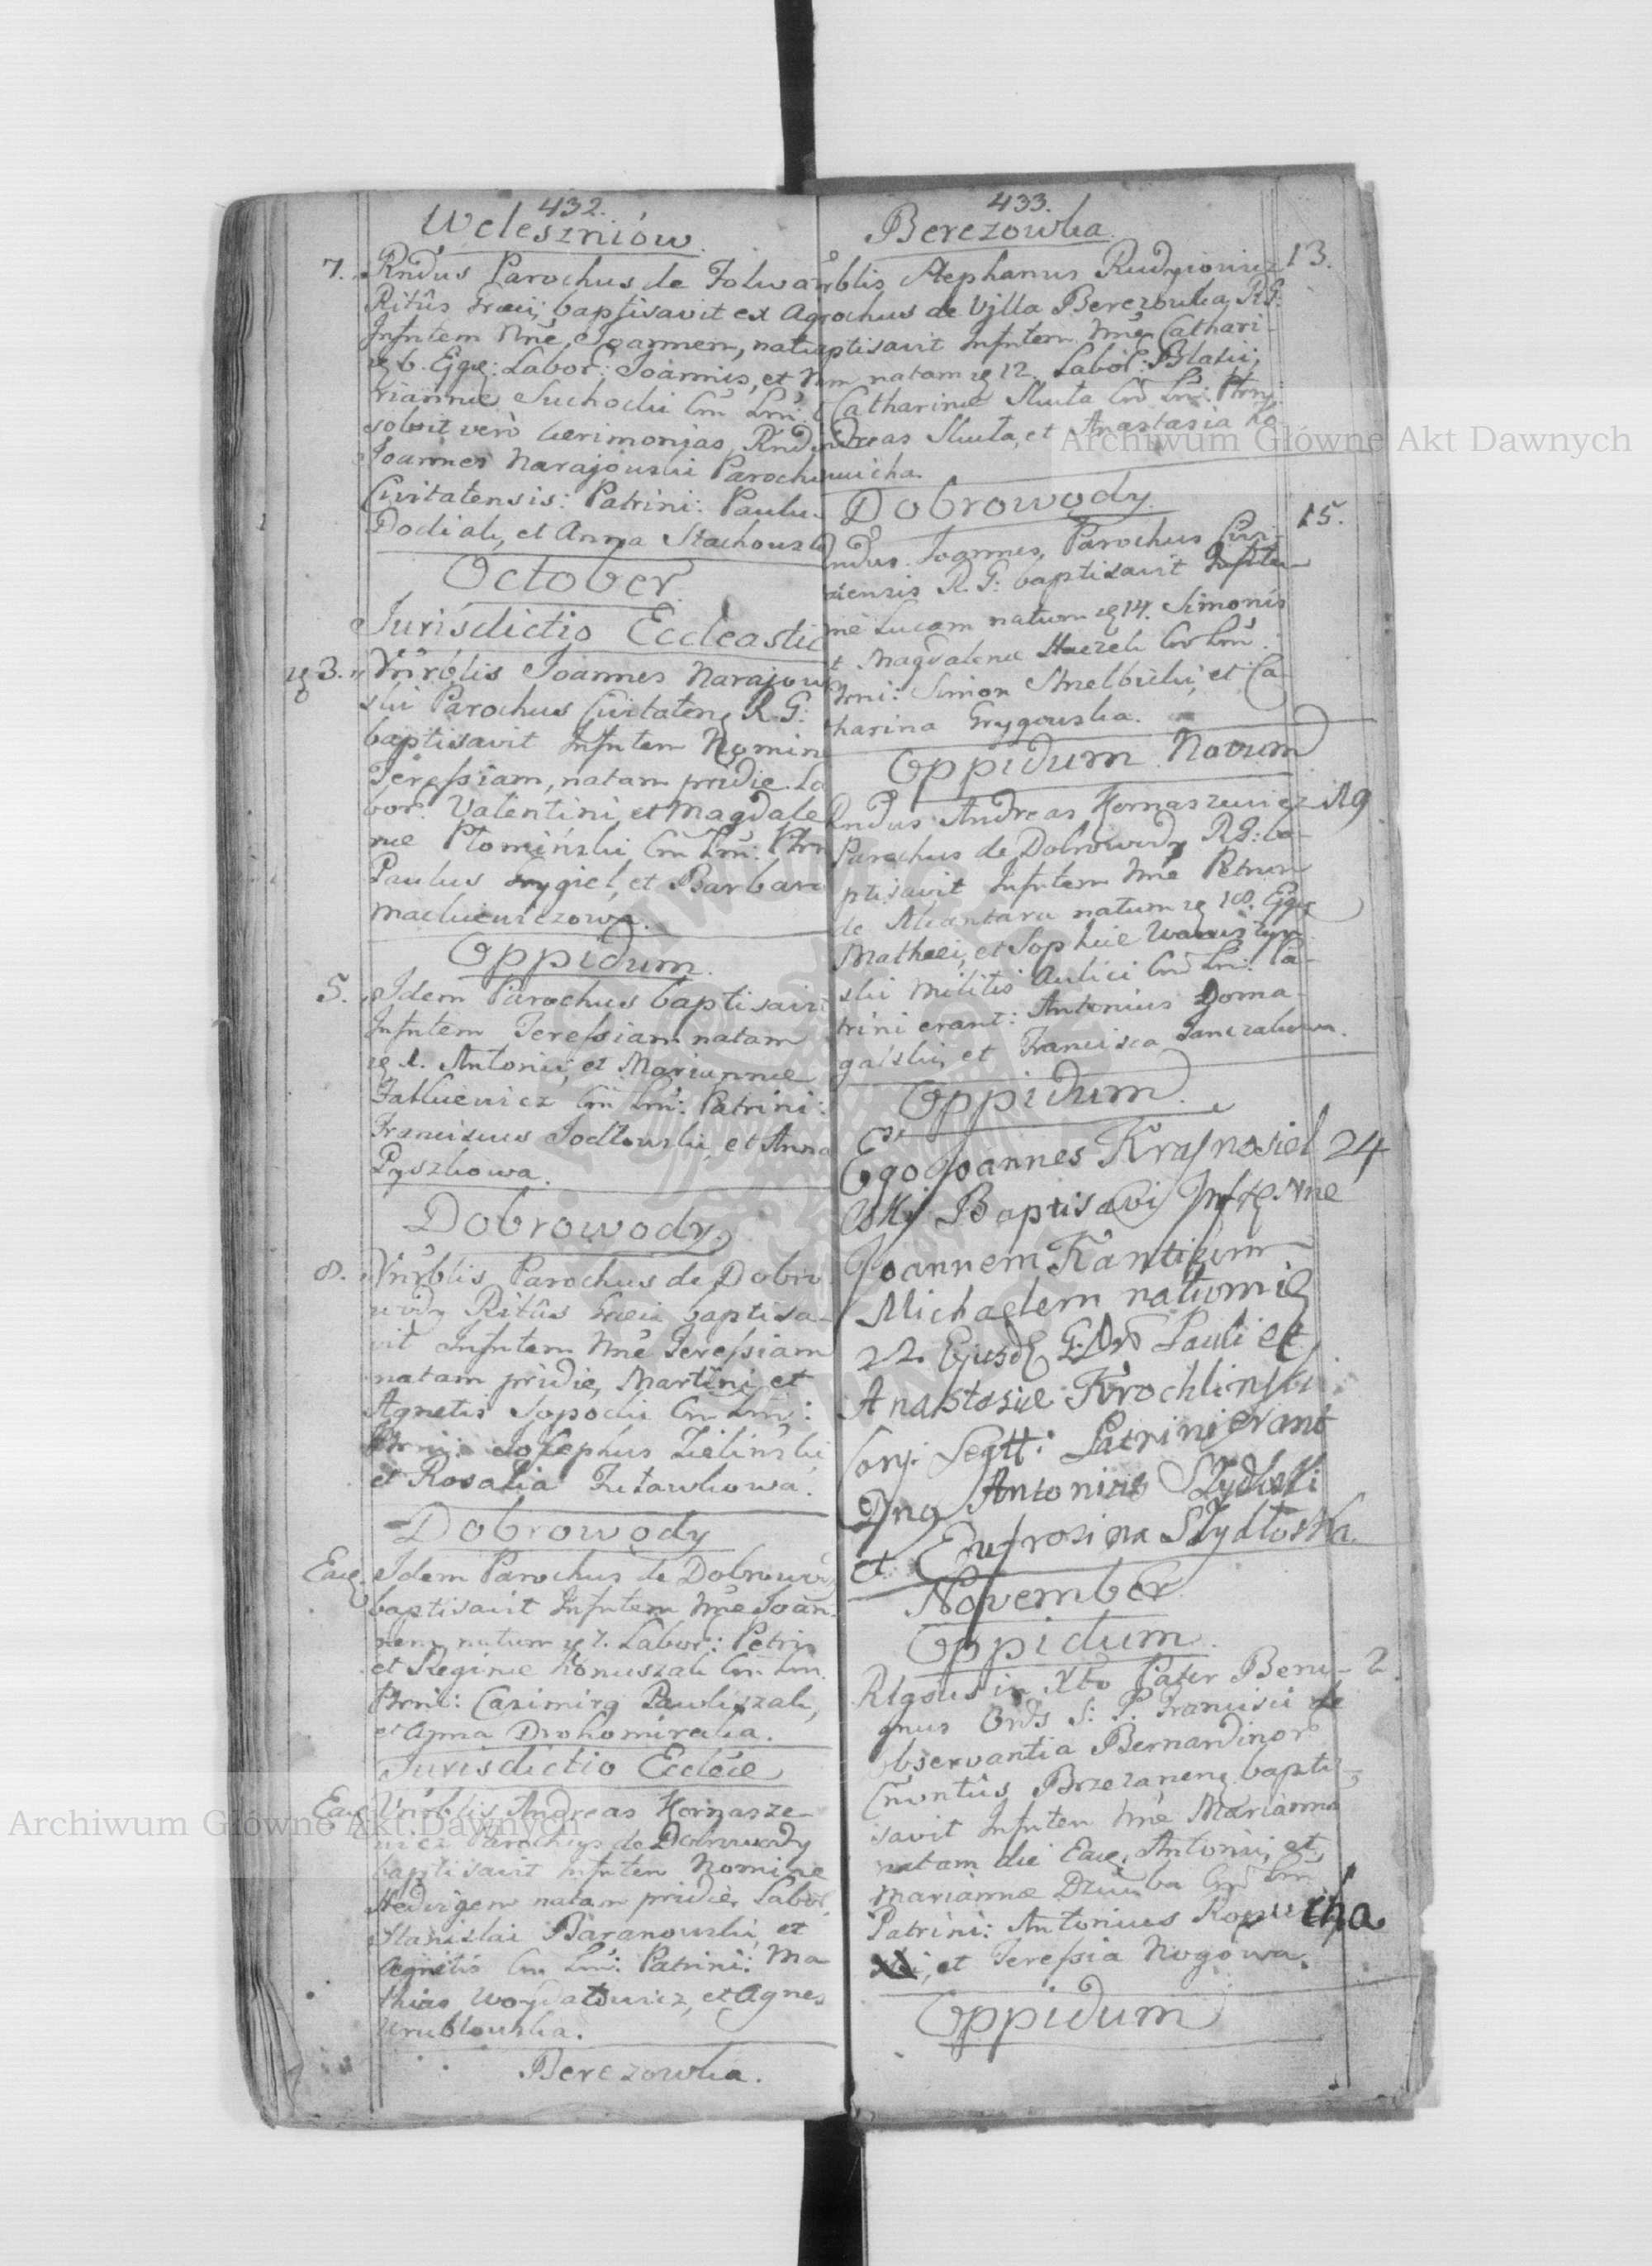 432.
Weleszniów.
7. Rndus Parochus de Folwar
Ritûs Graeci, baptisavit ex Ag
Infntem Nne Joannem, nat
6. Ejgz: Labor: Joannis, et
riannae Suchocki Cm Lm:
solvit vero Cerimonjas Rnd
Joannes Narajowski Paroch
Civitatensis: Patrini: Paulu
Dodiak, et Anna Stachowsk
October.
Jurisdictio Eccleastic
3. Vnrblis Joannes Narajow
ski Parochus Civitaten R.G:
baptisavit Infntem Nomin
Teressiam, natam pridie La
bor: Valentini, et Magdale
nae Płominski Cm Lm: Ptrn
Paulus Frygiel, et Barbara
Mackiewiczowa.
Oppidum.
5. Idem Parochus baptisavit
Infntem Teressiam natam
1. Antonii, et Mariannae
Fatkiewicz Cm Lm: Patrini:
Franciscus Jodłowski, et Anna
Pyszkowa.
Dobrowody.
8. Vnrblis Parochus de Dobro
wody Ritûs Graeci baptisa-
vit Infntem Nne Teressiam
natam pridie, Martini, et
Agnetis Sopocki Cm Lm:
Ptrni: Josephus Zielinski
et Rosalia
Dobrowody
Eadem Idem Parochus de Dobrowody
baptisavit Infntem Nne Joan-
nem natum 7. Labor: Petri
et Reginae Konuszak Cm Lm.
Ptrni: Casimirg Pawliszak,
et Anna Drohomirecka.
Jurisdictio Eccleae
Vnrblis Andreas Hornasze-
wicz Parochus de Dobrowody
baptisavit Infntem Nomine
Hedvigem natam pridie, Labor.
Stanislai Baranowski, et
Agnetis Cm Lm: Patrini: Ma
thias Woydatowicz, et Agnes
Wrublowska.
Berezowka.
433.
Berezowka.
rblis Stephanus Rudgiowicz 13.
rochus de Villa Berezowka R.G:
aptisavit Infntem Nne Cathari-
m natam 12. Labor: Blasii,
Catharinae Skuta Cm Lm: Ptrni:
dreas Skuta, et Anastasia Ko
wicha.
Dobrowody.
ndus Joannes, Parochus Civi- 15.
tensis R.G: baptisavit Infntem
ne Lucam natum 14. Simonis
t Magdalenae Cm Lm:
Ptrni: Simon Strzelbicki, et Ca-
tharina Grygowska.
Oppidum Novum
Rndus Andreas Hornaszewicz 19
Parochus de Dobrowody R.G: ba-
ptisavit Infntem Nne Petrum
de Alcantara natum 18. Ejgz
Mathaei, et Sophiae
ski Militis Aulici Cm Lm: Pa-
trini erant: Antonius Doma-
galski, et Francisca Janczakowa.
Oppidum.
Ego Joannes Krasnosiel 24
ski Baptisavi Nne
Joannem Kantium
Michaelem natum
22. Ejusd Pauli et
Anastasiae Krochlinski
Conj: Legtt: Patrini erant
Dng Antonius Szydłoski
et Eufrosina Szydłoska.
November
Oppidum.
Rlgosus in Xto Pater Beni- 2.
gnus Ords S: P. Francisci de
Observantia Bernardinor
Cnvntûs Brzezaneng bapti-
savit Infntem Nne Marianna
natam die Eadem, Antonii, et
Mariannae Dziuba Cm Lm
Patrini: Antonius Ropucha
et Teressia Nogowa.
Oppidum
Archiwum Główne Akt Dawnych
Archiwum Główne Akt Dawnych